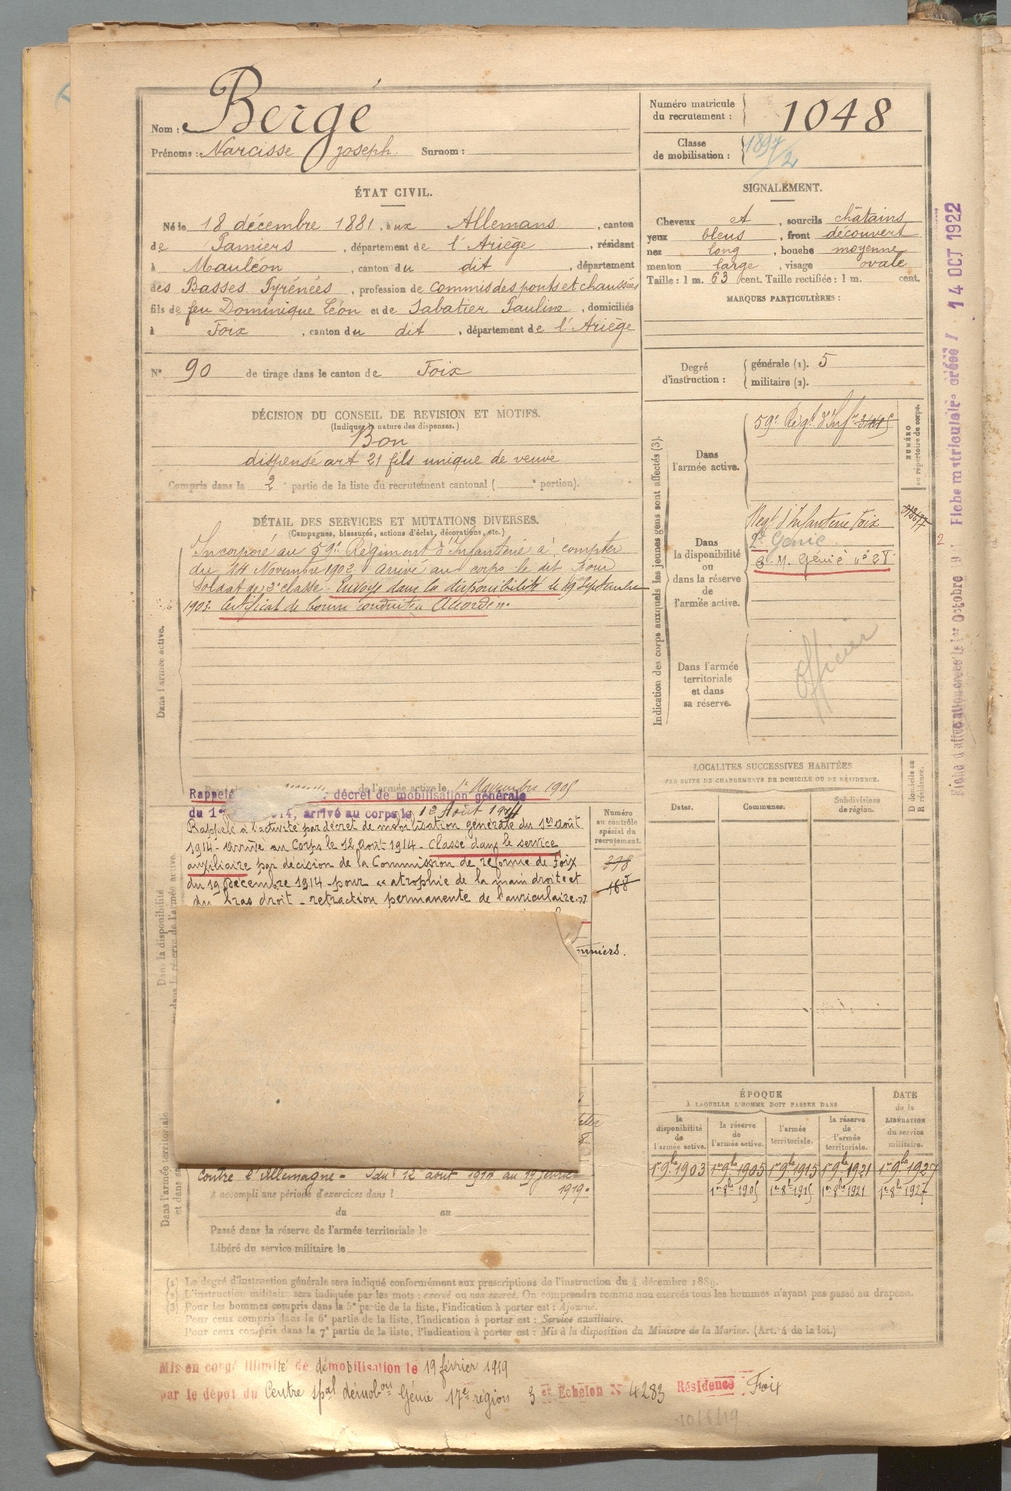 Nom : Bergé
Prénoms : Narcisse Joseph Surnom :
Numéro matricule du recrutement : 1048
Classe de mobilisation : 1897/2
ÉTAT CIVIL.
Né le 18 décembre 1881, aux Allemans, canton
de Pamiers, département de l'Ariège, résidant
à Mauléon, canton du dit, département
des Basses Pyrénées, profession de commis des ponts et chaussés
fils de feu Dominique Léon et de Sabatier Pauline, domiciliés
à Foix, canton du dit, département de l'Ariège
N° 90 de tirage dans le canton de Foix
SIGNALEMENT.
Cheveux et, sourcils châtains
yeux bleus, front découvert
nez long, bouche moyenne
menton large, visage ovale
Taille : 1 m. 63 cent. Taille rectifiée : 1 m. cent.
MARQUES PARTICULIÈRES :
Degré d'instruction : générale (1). 5
militaire (2).
DÉCISION DU CONSEIL DE REVISION ET MOTIFS.
(Indiquer la nature des dispenses.)
Bon
dispensé art 21 fils unique de veuve
Compris dans la 2e partie de la liste du recrutement cantonal ( e portion).
DÉTAIL DES SERVICES ET MUTATIONS DIVERSES.
(Campagnes, blessures, actions d'éclat, décorations, etc.)
Incorporé au 59e Régiment d'Infanterie à compter
du 14 Novembre 1902. Arrivé au corps le dit jour
Soldat de 2e classe. Envoyé dans la disponibilité le 19 Septembre
1903 Certificat de bonne conduite Accordé.
Dans l'armée active.
Indication des corps auxquels les jeunes gens sont affectés (3).
NUMÉRO au répertoire du corps.
Dans l'armée active.
59e Régt d'Inf
Dans la disponibilité ou dans la réserve de l'armée active.
Regt d'Infanterie Foix
2e Génie
Dans l'armée territoriale et dans sa réserve.
Officier
de l'armée active le 1er Novembre 1905
Rappelé décret de mobilisation générale
du 1er 14, arrivé au corps le 12 Août 1914
Rappelé à l'activité par décret de mobilisation générale du 1er Août
1914 - arrivé au Corps le 12 août 1914 - Classé dans le service
auxiliaire par décision de la Commission de réforme de Foix
du 19 décembre 1914 - pour "atrophie de la main droite et
du bras droit - retraction permanente de l'auriculaire."
Numéro au contrôle spécial du recrutement.
168
Dans la disponibilité
dans la réserve de l'armée active
LOCALITÉS SUCCESSIVES HABITÉES
PAR SUITE DE CHANGEMENTS DE DOMICILE OU DE RÉSIDENCE.
Dates.
Communes.
Subdivisions de région.
D domicile ou R résidence.
ÉPOQUE
À LAQUELLE L'HOMME DOIT PASSER DANS
la disponibilité de l'armée active.
la réserve de l'armée active.
l'armée territoriale.
la réserve de l'armée territoriale.
DATE de la LIBÉRATION du service militaire.
1er 9bre 1903 1er 9bre 1905 1er 9bre 1915 1er 9bre 1921 1er 9bre 1927
Dans l'armée territoriale
Contre l'Allemagne - du 12 août 1914 au 19 février
1919.
A accompli une période d'exercices dans l
du au
Passé dans la réserve de l'armée territoriale le
Libéré du service militaire le
(1) Le degré d'instruction générale sera indiqué conformément aux prescriptions de l'instruction du 4 décembre 1889.
(2) L'instruction militaire sera indiquée par les mots : exercé ou non exercé. On comprendra comme non exercés tous les hommes n'ayant pas passé au drapeau.
(3) Pour les hommes compris dans la 5e partie de la liste, l'indication à porter est : Ajourné.
Pour ceux compris dans la 6e partie de la liste, l'indication à porter est : Service auxiliaire.
Pour ceux compris dans la 7e partie de la liste, l'indication à porter est : Mis à la disposition du Ministre de la Marine. (Art. 4 de la loi.)
Mis en congé illimité de démobilisation le 19 février 1919
par le dépôt du Centre spal démobon Génie 17e région 3 et Echelon N° 4283 Résidence Foix
10/6/19
Fiche matriculaire créée l 14 OCT 1922